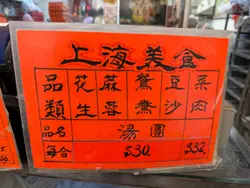 上海美食
品類
花生
蔴蓉
鴛鴦
豆沙
菜肉
品名 湯圓
每合 $30. $32.